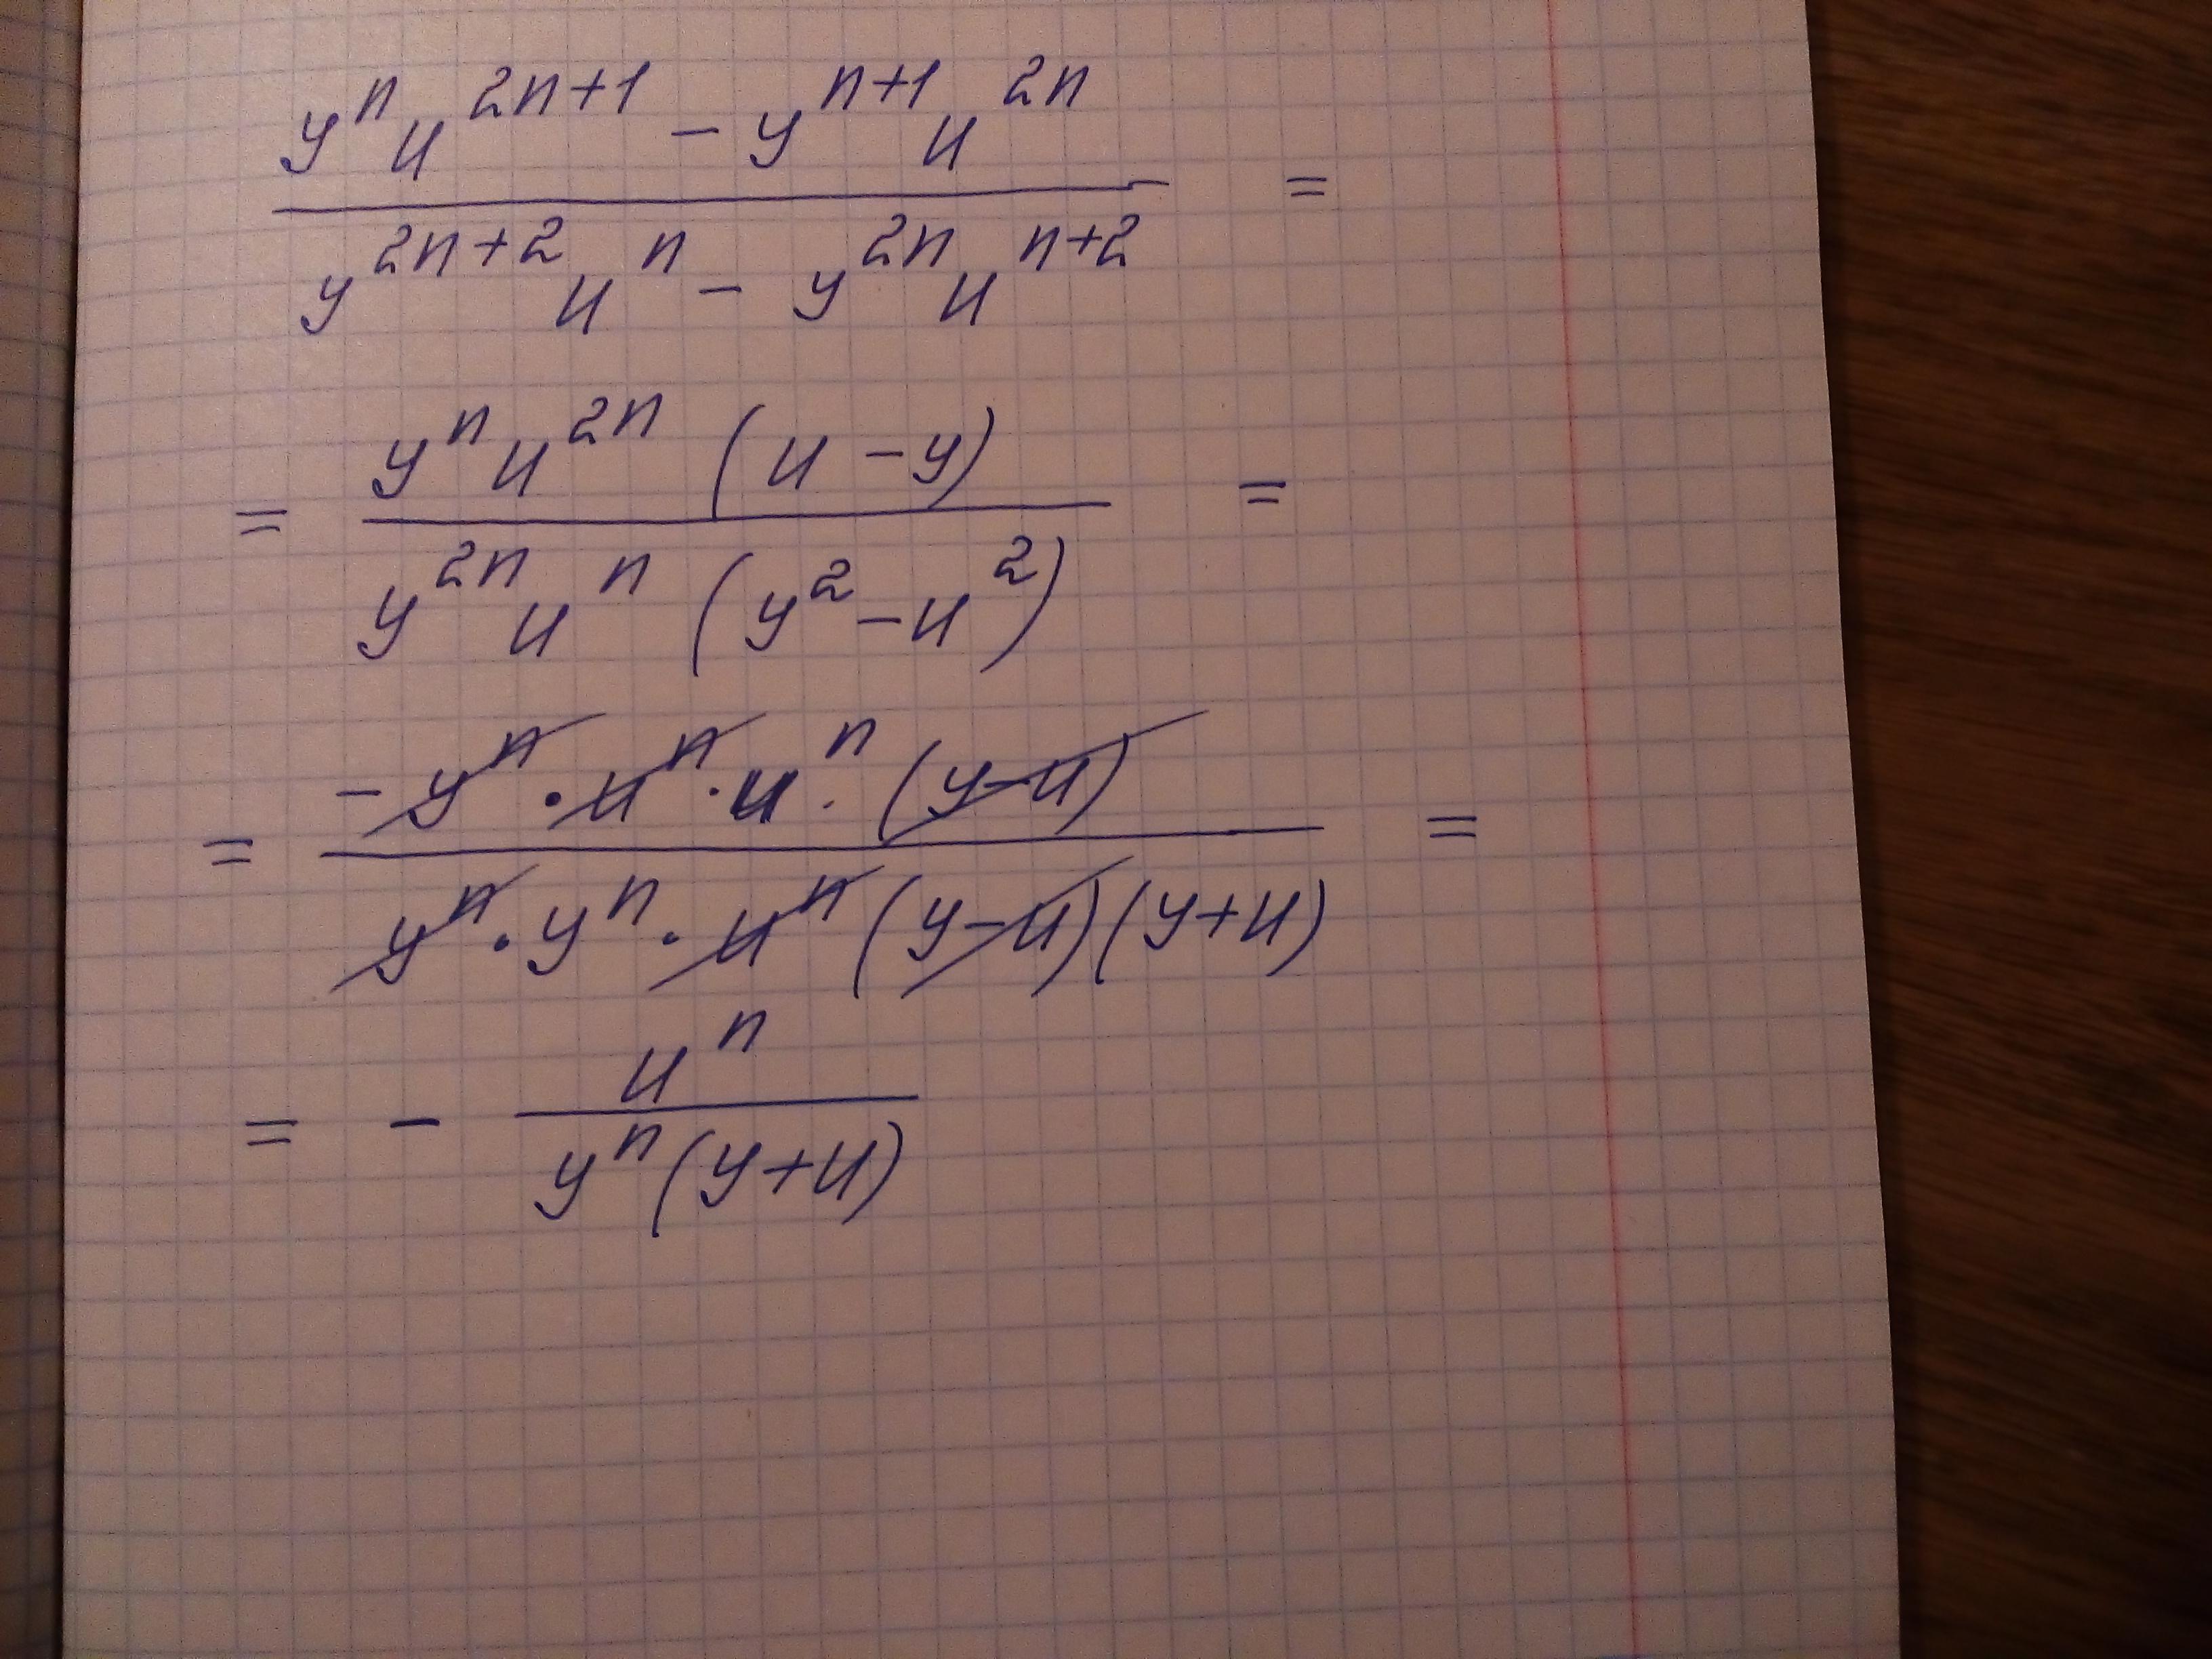 yⁿu²ⁿ⁺¹ − yⁿ⁺¹u²ⁿ
=
y²ⁿ⁺²uⁿ − y²ⁿuⁿ⁺²
yⁿu²ⁿ (u − y)
= =
y²ⁿuⁿ (y² − u²)
− yⁿ · uⁿ · uⁿ · (y−u)
= =
yⁿ · yⁿ · uⁿ (y−u)(y+u)
uⁿ
= −
yⁿ(y+u)